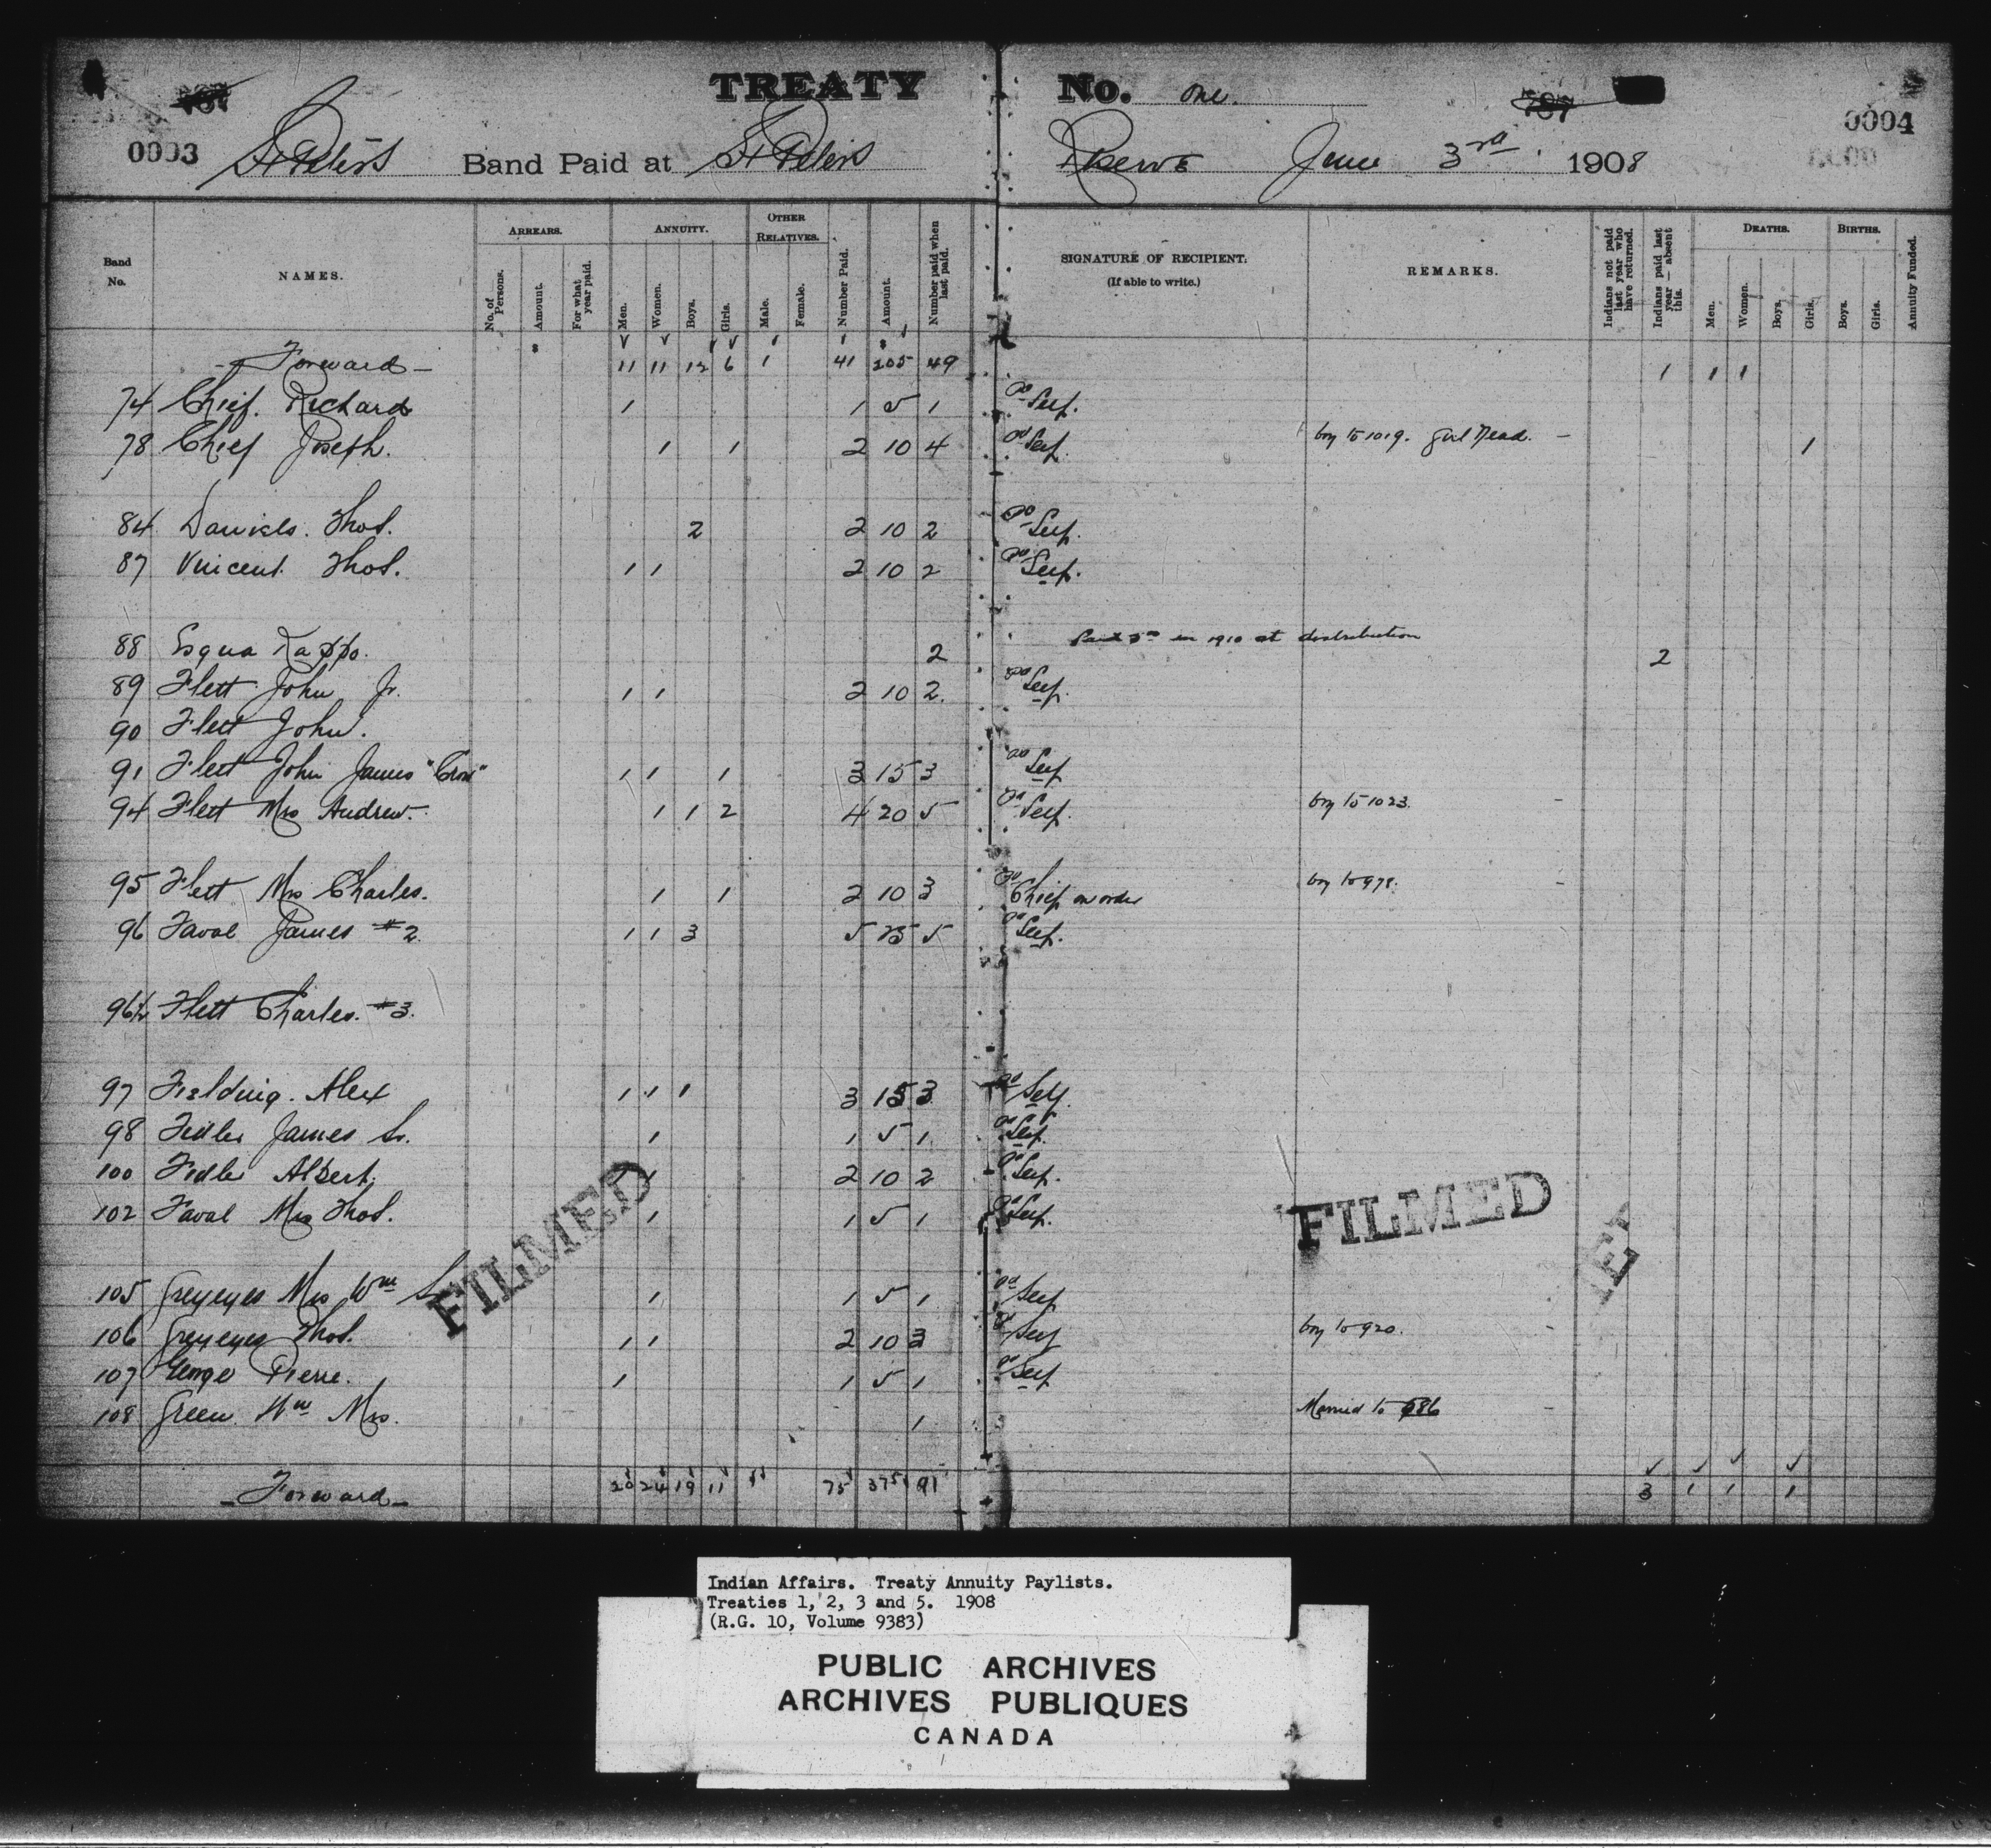 TREATY No. One.
0003 St Peters Band Paid at St Peters Reserve June 3rd 1908 0004
Band No. NAMES. ARREARS. No. of Persons. Amount. For what year paid. ANNUITY. Men. Women. Boys. Girls. OTHER RELATIVES. Male. Female. Number Paid. Amount. Number paid when last paid. SIGNATURE OF RECIPIENT. (If able to write.) REMARKS. Indians not paid last year who have returned. Indians paid last year — absent this. DEATHS. Men. Women. Boys. Girls. BIRTHS. Boys. Girls. Annuity Funded.
Forward 11 11 12 6 1 41 205 49 1 1 1
74 Chief. Richard 1 1 5 1 Self.
78 Chief Joseph. 1 1 2 10 4 Self. boy to 1019. girl Dead. 1
84 Daniels. Thos. 2 2 10 2 Self.
87 Vincent. Thos. 1 1 2 10 2 Self.
88 Esqua Kappo. 2 Paid in 1910 at distribution 2
89 Flett John Jr. 1 1 2 10 2 Self.
90 Flett John.
91 Flett John James "Crow" 1 1 1 3 15 3 Self
94 Flett Mrs Andrew. 1 1 2 4 20 5 Self. boy to 1023.
95 Flett Mrs Charles. 1 1 2 10 3 Chief on order boy to 978.
96 Faval James #2. 1 1 3 5 25 5 Self.
96½ Flett Charles. #3.
97 Fielding. Alex 1 1 1 3 15 3 Self.
98 Fidler James Sr. 1 1 5 1 Self.
100 Fidler Albert. 1 1 2 10 2 Self.
102 Faval Mrs Thos. 1 1 5 1 Self.
FILMED
FILMED
105 Greyeyes Mrs Wm Sr 1 1 5 1 Self
106 Greyeyes Thos. 1 1 2 10 3 Self boy to 920.
107 George Pierre. 1 1 5 1 Self
108 Green Wm Mrs. 1 Married to 686
Forward 20 24 19 11 1 75 375 91 3 1 1 1
Indian Affairs. Treaty Annuity Paylists.
Treaties 1, 2, 3 and 5. 1908
(R.G. 10, Volume 9383)
PUBLIC ARCHIVES
ARCHIVES PUBLIQUES
CANADA